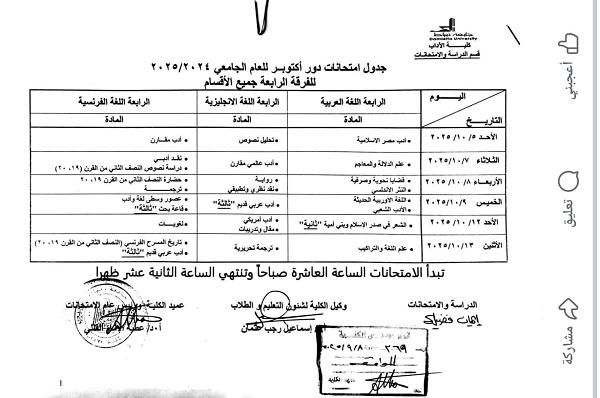 جامعة دمياط
Damietta University
كلية الآداب
قسم الدراسة والامتحانات
جدول امتحانات دور أكتوبر للعام الجامعي ٢٠٢٥/٢٠٢٤
للفرقة الرابعة جميع الأقسام
اليوم
التاريخ
الرابعة اللغة العربية
الرابعة اللغة الانجليزية
الرابعة اللغة الفرنسية
المادة
المادة
المادة
الأحد ٢٠٢٥/١٠/٥
أدب مصر الاسلامية
تحليل نصوص
أدب مقارن
الثلاثاء ٢٠٢٥/١٠/٧
علم الدلالة والمعاجم
أدب عالمي مقارن
نقد أدبي
دراسة نصوص النصف الثاني من القرن (١٩، ٢٠)
الأربعاء ٢٠٢٥/١٠/٨
قضايا نحوية وصرفية
النثر الاندلسي
رواية
نقد نظري وتطبيقي
حضارة النصف الثاني من القرن ١٩، ٢٠
ترجمة
الخميس ٢٠٢٥/١٠/٩
اللغة الأوربية الحديثة
الأدب الشعبي
أدب عربي قديم "ثالثة"
عصور وسطى لغة وأدب
قاعة بحث "ثالثة"
الأحد ٢٠٢٥/١٠/١٢
الشعر في صدر الاسلام وبني أمية "ثانية"
أدب أمريكي
مقال وتدريبات
لغويات
الأثنين ٢٠٢٥/١٠/١٣
علم اللغة والتراكيب
ترجمة تحريرية
تاريخ المسرح الفرنسي (النصف الثاني من القرن ١٩، ٢٠)
أدب عربي قديم "ثالثة"
تبدأ الامتحانات الساعة العاشرة صباحاً وتنتهي الساعة الثانية عشر ظهرا
الدراسة والامتحانات
وكيل الكلية لشئون التعليم و الطلاب
عميد الكلية ورئيس عام الامتحانات
إسماعيل رجب عثمان
٢٦٩
أعجبني
تعليق
مشاركة